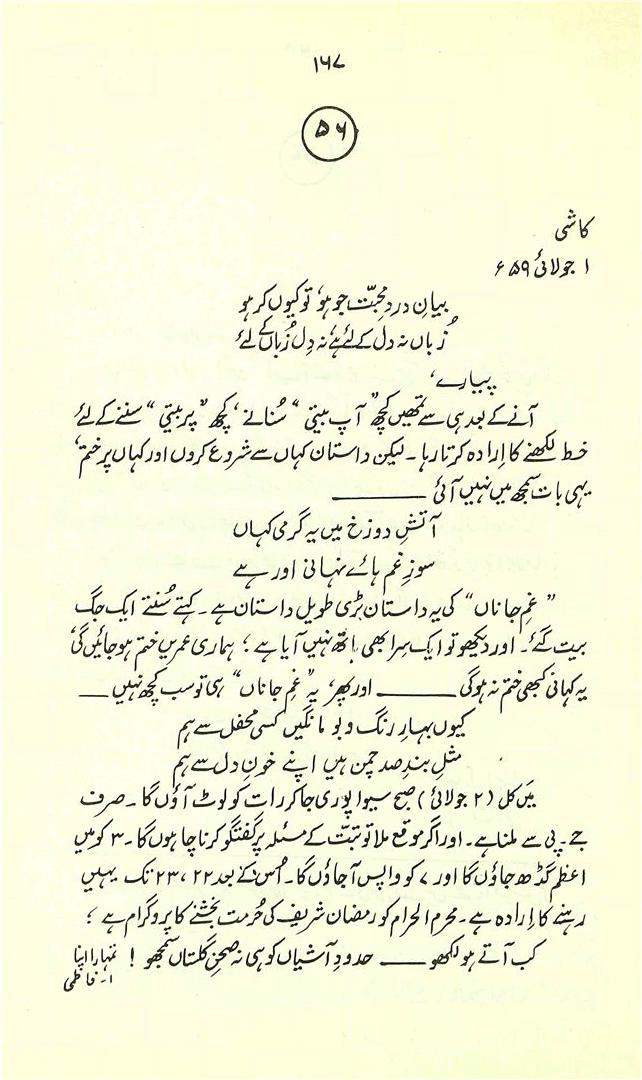 ۱۶۷
۵۶
کاشی
۱ جولائی ۵۹ء
بیانِ دردِ محبّت جو ہو، تو کیوں کر ہو
زُباں نہ دل کے لئے ہے، نہ دِل زُباں کے لئے
پیارے،
آنے کے بعد ہی سے تمھیں کچھ ”آپ بیتی“ سُنانے، کچھ ”پر بیتی“ سننے کے لئے
خط لکھنے کا اِرادہ کرتا رہا۔ لیکن داستان کہاں سے شروع کروں اور کہاں پر ختم،
یہی بات سمجھ میں نہیں آئی ———
آتشِ دوزخ میں یہ گرمی کہاں
سوزِ غم ہائے نہانی اور ہے
”غمِ جاناں“ کی یہ داستان بڑی طویل داستان ہے۔ کہتے سُنتے ایک جگ
بیت گئے۔ اور دیکھو تو ایک سِرا بھی ہاتھ نہیں آیا ہے؛ ہماری عمریں ختم ہو جائیں گی،
یہ کہانی کبھی ختم نہ ہوگی ——— اور پھر، یہ ”غمِ جاناں“ ہی تو سب کچھ نہیں —
کیوں بہارِ رنگ و بو مانگیں کسی محفل سے ہم
مثلِ بندِ صد چمن ہیں اپنے خونِ دل سے ہم
میَں کل (۲ جولائی) صبح سیوا پوری جا کر رات کو لوٹ آؤں گا۔ صرف
جے۔پی سے ملنا ہے۔ اور اگر موقع ملا تو تبّت کے مسئلہ پر گفتگو کرنا چاہوں گا۔ ۳ کو میں
اعظم گڈھ جاؤں گا اور ۷ کو واپس آجاؤں گا۔ اُس کے بعد ۲۲، ۲۳ تک یہیں
رہنے کا اِرادہ ہے۔ محرم الحرام کو رمضان شریف کی حُرمت بخشنے کا پروگرام ہے؛
کب آتے ہو لکھو ——— حدودِ آشیاں کو ہی نہ صحنِ گلستاں سمجھو! تمہارا اپنا
ا۔ فاطمی